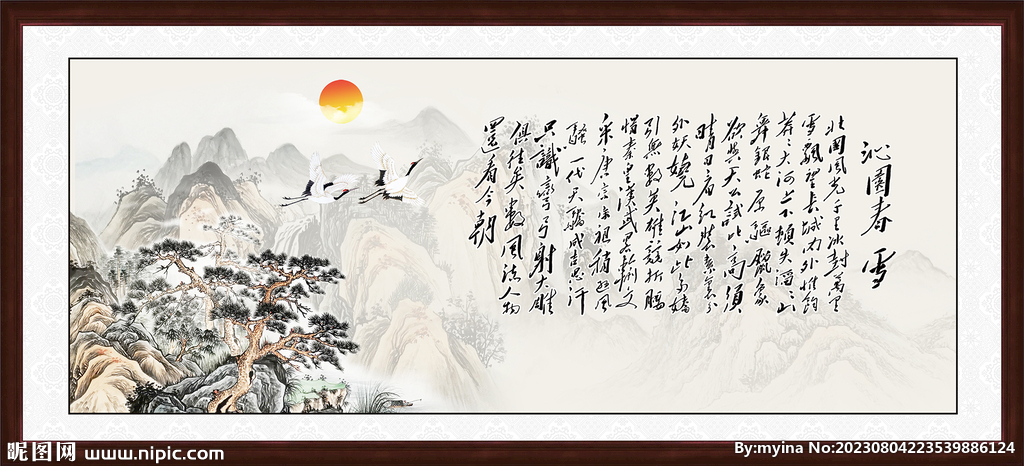 沁園春 雪
北國風光千里冰封萬里
雪飄望長城內外惟餘
莽莽大河上下頓失滔滔山
舞銀蛇原驅臘象
欲與天公試比高須
晴日看紅裝素裹分
外妖嬈江山如此多嬌
引無數英雄競折腰
惜秦皇漢武略輸文
采唐宗宋祖稍遜風
騷一代天驕成吉思汗
只識彎弓射大雕
俱往矣數風流人物
還看今朝
昵图网 www.nipic.com
By:myina No:20230804223539886124